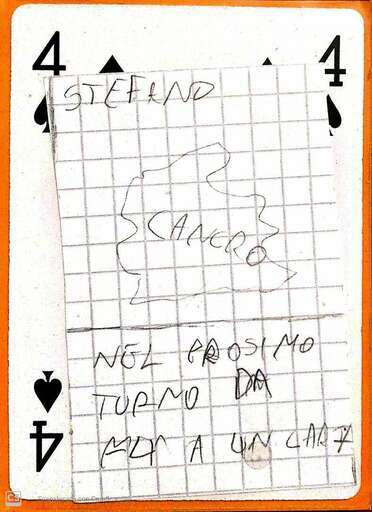 4 4
STEFANO
CANCRO
NEL PROSIMO
TURNO DA
A UN CARTA
4
CS